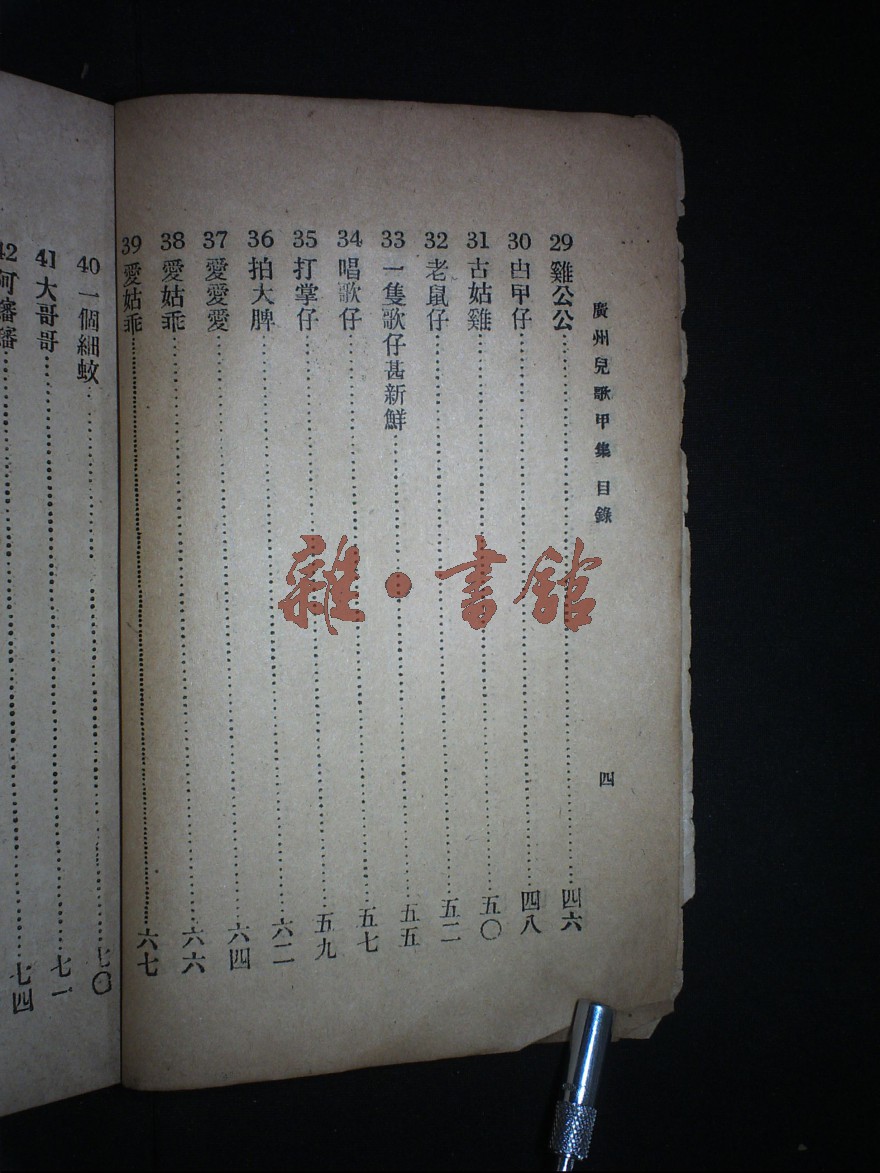 廣州兒歌甲集 目錄 四
29 雞公公 四六
30 甴甲仔 四八
31 古姑雞 五〇
32 老鼠仔 五二
33 一隻歌仔甚新鮮 五五
34 唱歌仔 五七
35 打掌仔 五九
36 拍大脾 六二
37 愛愛愛 六四
38 愛姑乖 六六
39 愛姑乖 六七
40 一個細蚊 七〇
41 大哥哥 七一
42 阿旛旛 七四
雜·書館